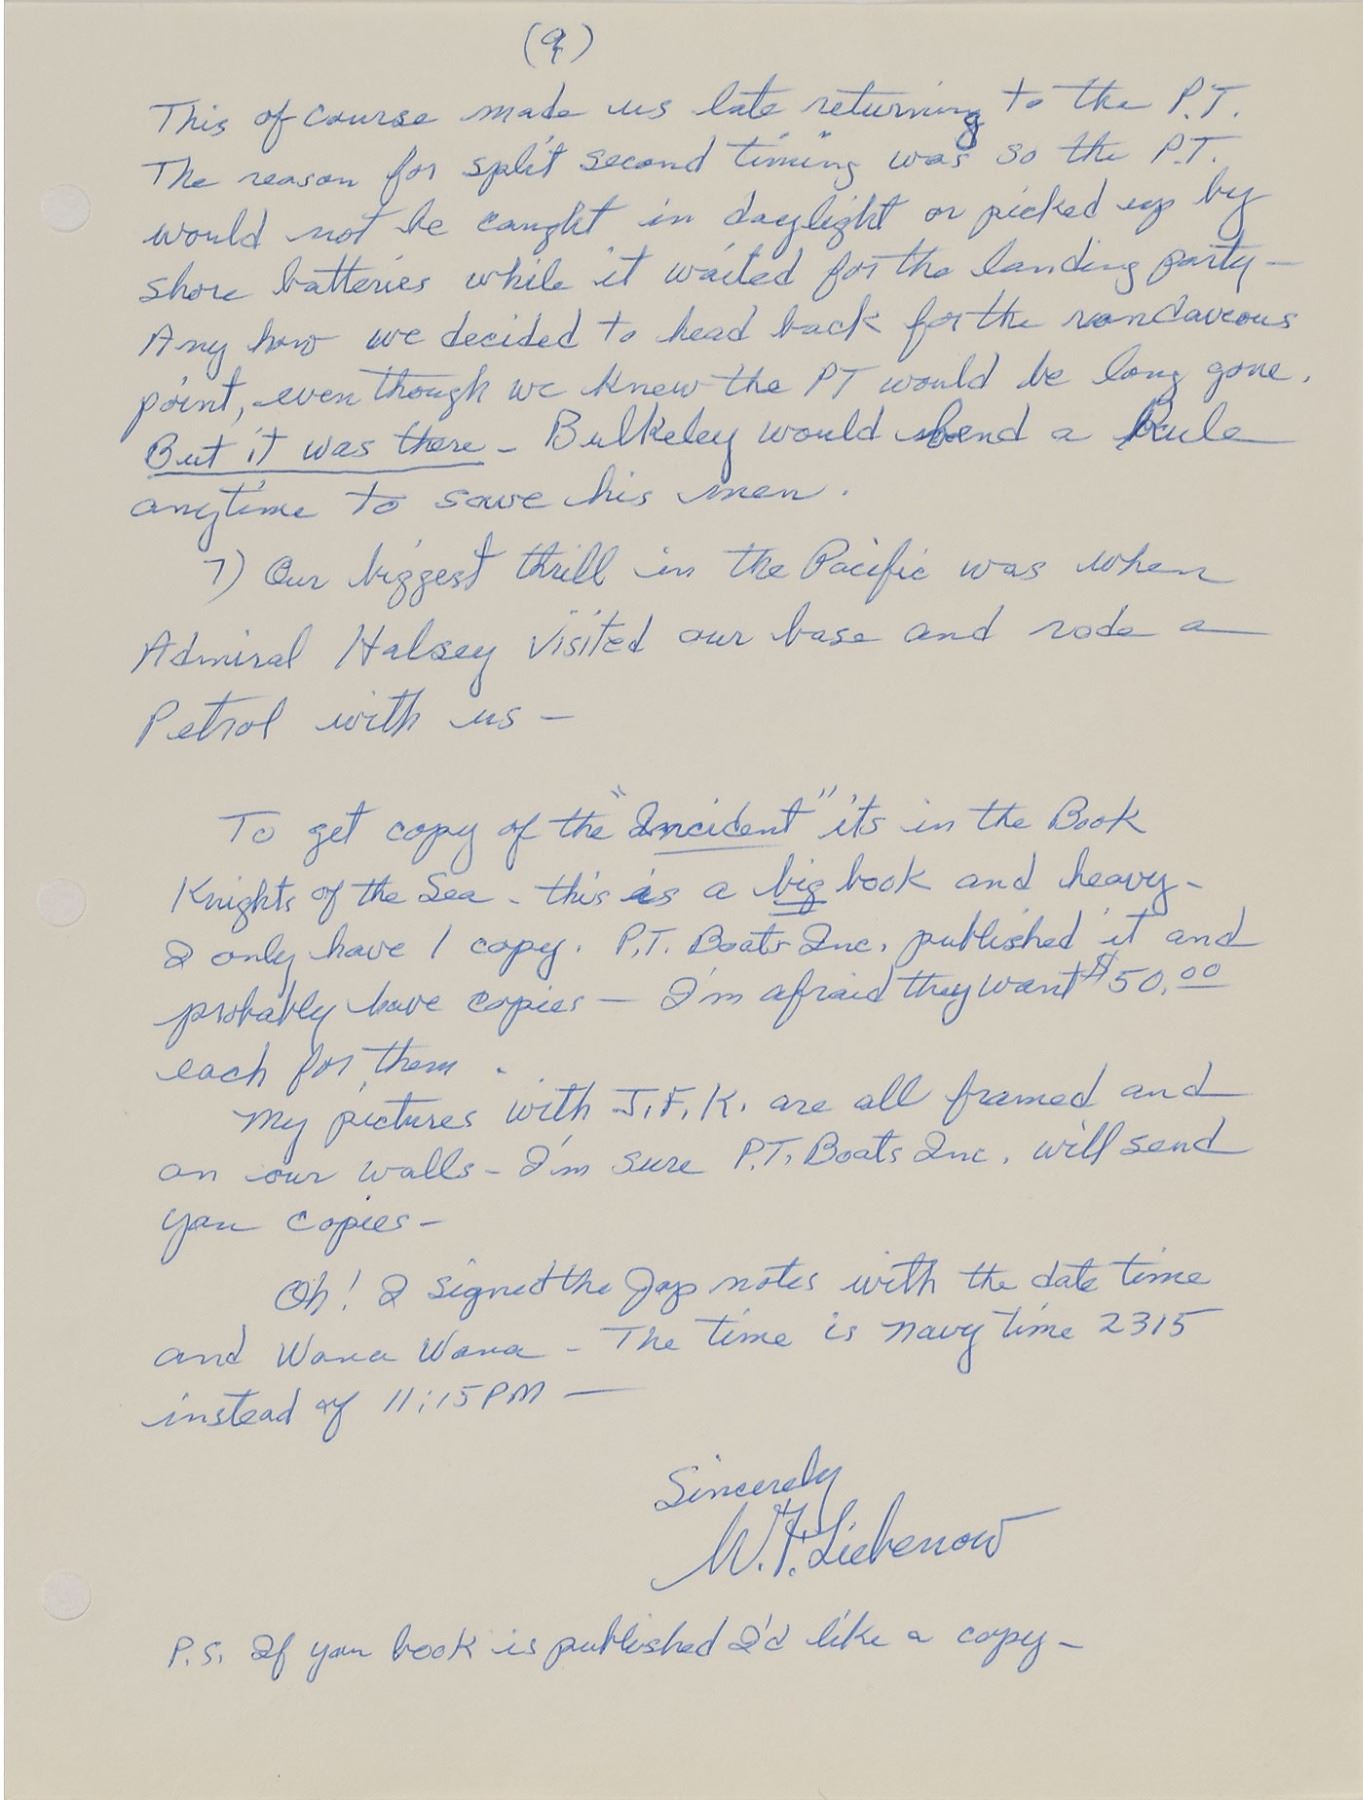 (9)
This of course made us late returning to the P.T.
The reason for split second timing was so the P.T.
would not be caught in daylight or picked up by
shore batteries while it waited for the landing party -
Any how we decided to head back for the rondaveous
point, even though we knew the PT would be long gone.
But it was there - Bulkeley would bend a rule
anytime to save his men.
7) Our biggest thrill in the Pacific was when
Admiral Halsey visited our base and rode a
Petrol with us -
To get copy of the "Incident" its in the Book
Knights of the Sea - this is a big book and heavy -
I only have 1 copy. P.T. Boats Inc. published it and
probably have copies - I'm afraid they want $50.00
each for them.
My pictures with J.F.K. are all framed and
on our walls - I'm sure P.T. Boats Inc. will send
you copies -
Oh! I signed the Jap notes with the date time
and Wana Wana - The time is navy time 2315
instead of 11:15 PM -
Sincerely
W.F. Liebenow
P.S. If your book is published I'd like a copy -